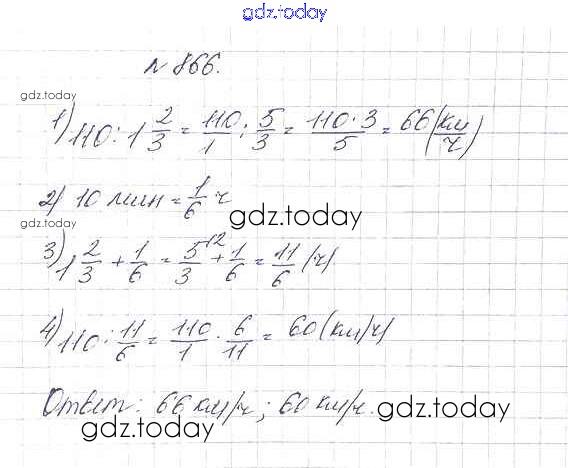 gdz.today
№ 866.
gdz.today
1) 110 : 1 2/3 = 110/1 : 5/3 = 110·3/5 = 66 (км/ч)
2) 10 мин = 1/6 ч
gdz.today
gdz.today
3) 1 2/3 + 1/6 = 5/3 \2 + 1/6 = 11/6 (ч)
4) 110 : 11/6 = 110/1 · 6/11 = 60 (км/ч)
Ответ: 66 км/ч; 60 км/ч.
gdz.today
gdz.today